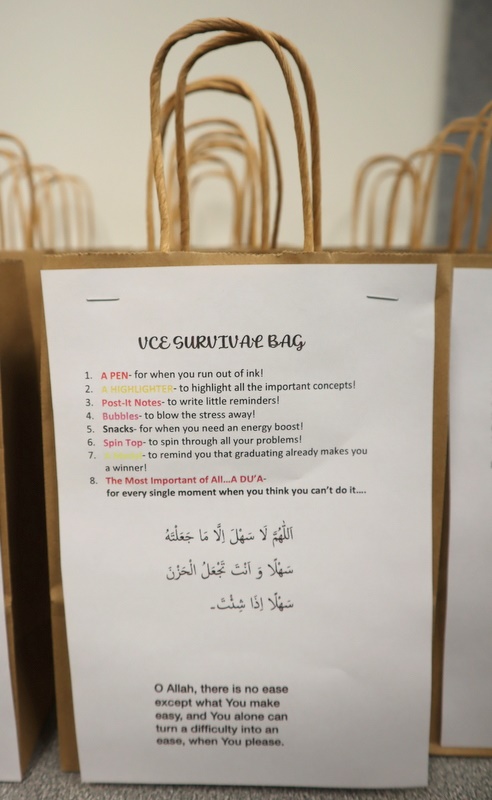 VCE SURVIVAL BAG
1. A PEN- for when you run out of ink!
2. A HIGHLIGHTER- to highlight all the important concepts!
3. Post-It Notes- to write little reminders!
4. Bubbles- to blow the stress away!
5. Snacks- for when you need an energy boost!
6. Spin Top- to spin through all your problems!
7. - to remind you that graduating already makes you
a winner!
8. The Most Important of All...A DU'A-
for every single moment when you think you can't do it....
اَللّٰهُمَّ لَا سَهْلَ اِلَّا مَا جَعَلْتَهُ
سَهْلًا وَ اَنْتَ تَجْعَلُ الْحَزْنَ
سَهْلًا اِذَا شِئْتَ۔
O Allah, there is no ease
except what You make
easy, and You alone can
turn a difficulty into an
ease, when You please.